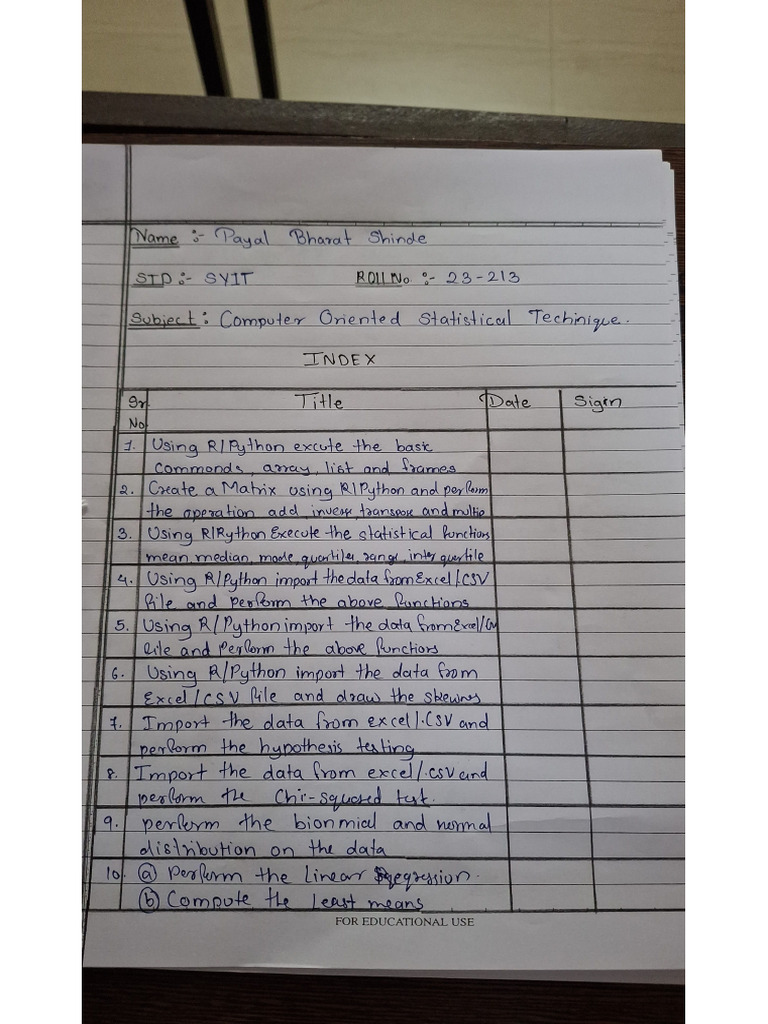 Name :- Payal Bharat Shinde
STD :- SYIT ROLL No. :- 23-213
Subject : Computer Oriented Statistical Techinique.
INDEX
Sr. No Title Date Sign
1. Using R/Python excute the basic
commonds, array, list and frames
2. Create a Matrix using R/Python and perform
the operation add, inverse, transpose and multip
3. Using R/Rython Execute the statistical functions
mean, median, mode, quartiles, range, inter quertile
4. Using R/Python import the data from Excel/.CSV
file and perform the above functions
5. Using R/Python import the data from Excel/
file and perform the above functions
6. Using R/Python import the data from
Excel/CSV file and draw the skewnes
7. Import the data from excel/.CSV and
perform the hypothesis testing
8. Import the data from excel/.csv and
perform the Chi-squared test.
9. perform the bionmial and normal
distribution on the data
10. (a) Perform the Linear Regression.
(b) Compute the Least means
FOR EDUCATIONAL USE